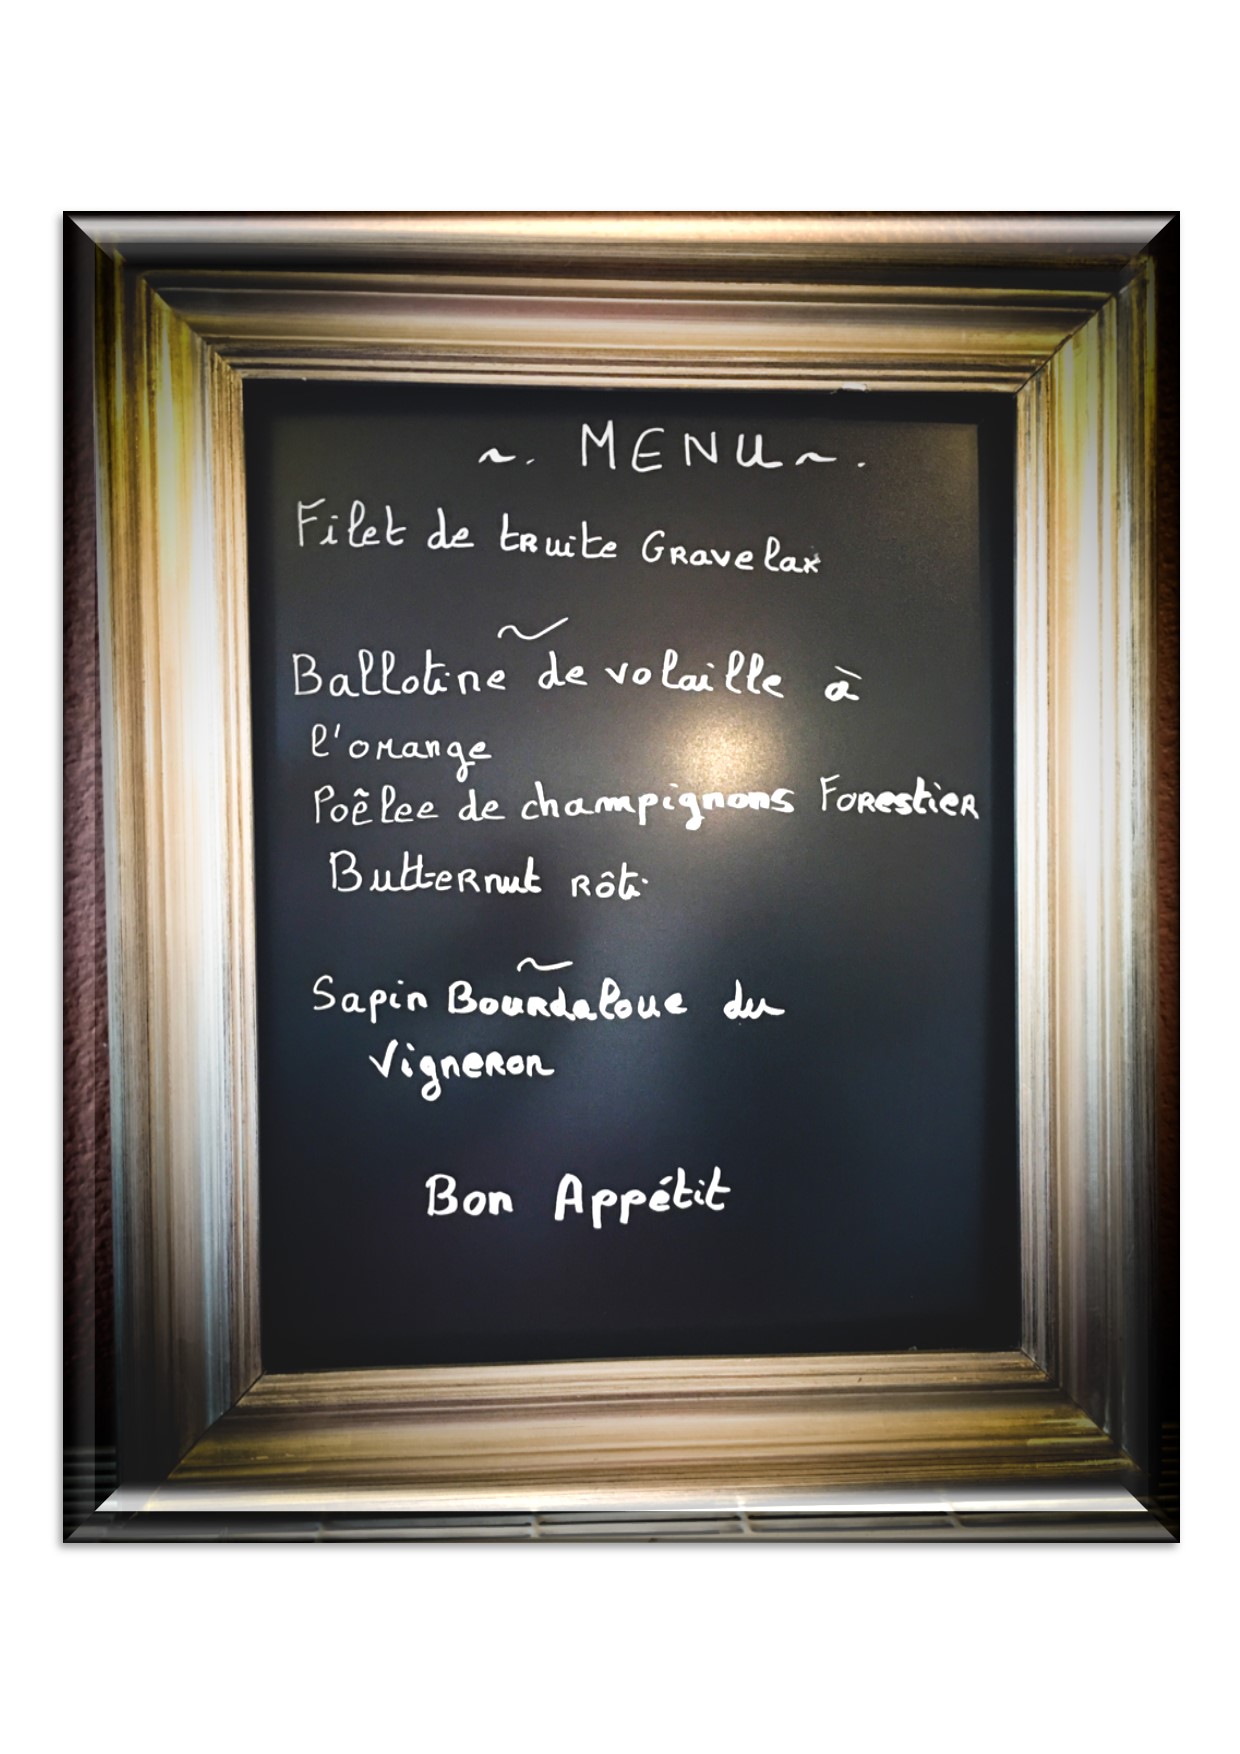 ~. MENU ~.
Filet de truite Gravelax
~
Ballotine de volaille à
l'orange
Poêlee de champignons Forestier
Butternut rôti
~
Sapin Bourdaloue du
Vigneron
Bon Appétit